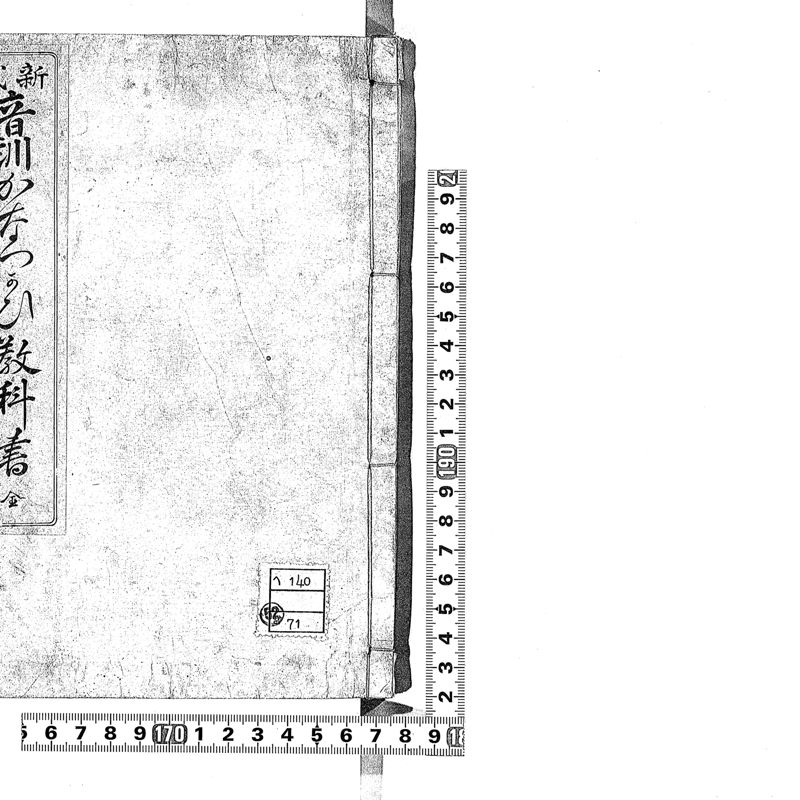 新式
音訓かなつかひ教科書 全
ヘ 140
52
71
9 8 7 6 5 4 3 2 1 190 9 8 7 6 5 4 3 2
6 7 8 9 170 1 2 3 4 5 6 7 8 9